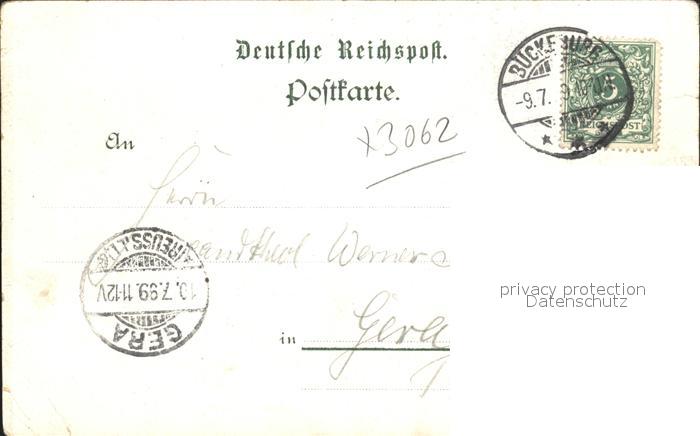 Deutsche Reichspost.
Postkarte.
BÜCKEBURG
-9.7.
5
REICHSPOST
x3062
An
Herrn
Werner
GERA (REUSS.J.L.)
10.7.99.11-12V
in Gera
privacy protection
Datenschutz